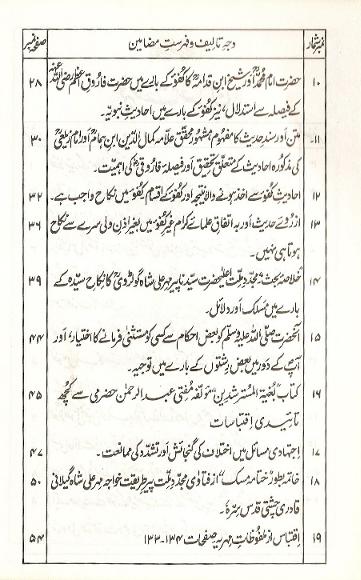 نمبر شمار وجہ تالیف و فہرست مضامین صفحہ نمبر
۱۰ حضرت امام محمدؒ اور شیخ ابن قدامہؒ کا کفو کے بارے میں حضرت فاروق اعظم رضی اللہ عنہ ۲۸
کے فیصلہ سے استدلال، نیز کفو کے بارے میں احادیث نبویہ۔
۱۱۔ متن اور سند حدیث کا مفہوم مشہور محقق علامہ کمال الدین ابن ہمامؒ اور امام زیلعیؒ ۳۰
کی مذکورہ احادیث کے متعلق تحقیق اور فیصلہ فاروقیؓ کی اہمیت۔
۱۲ احادیث کفو سے اخذ ہونے والا نتیجہ اور کفو کے اقسام کفو میں نکاح واجب ہے۔ ۳۲
۱۳ ازروئے حدیث اور بہ اتفاق علمائے کرام غیر کفو میں بغیر اذن ولی سرے سے نکاح ۳۶
ہوتا ہی نہیں۔
۱۴ خلاصہ بحث: مجدد ملت اعلیٰحضرت سیدنا پیر مہر علی شاہ گولڑویؒ کا نکاح سیدہ کے ۳۹
بارے میں مسلک اور دلائل۔
۱۵ آنحضرت صلی اللہ علیہ وسلم کو بعض احکام سے کسی کو مستثنیٰ فرمانے کا اختیار، اور ۴۴
آپؐ کے دور میں بعض رشتوں کے بارے میں توجیہ۔
۱۶ کتاب "بغیۃ المسترشدین" مؤلفہ مفتی عبدالرحمٰن حضرمی سے کچھ ۴۵
تائیدی اقتباسات
۱۷ اجتہادی مسائل میں اختلاف کی گنجائش اور تشدد کی ممانعت۔ ۴۷
۱۸ خاتمہ بطور "ختامہ مسک" از فتاویٰ مجدد ملت پیر طریقت خواجہ مہر علی شاہ گیلانی ۵۰
قادری چشتی قدس سرہٗ۔
۱۹ اقتباس از ملفوظات مہریہ صفحات ۱۳۴-۱۳۲ ۵۴